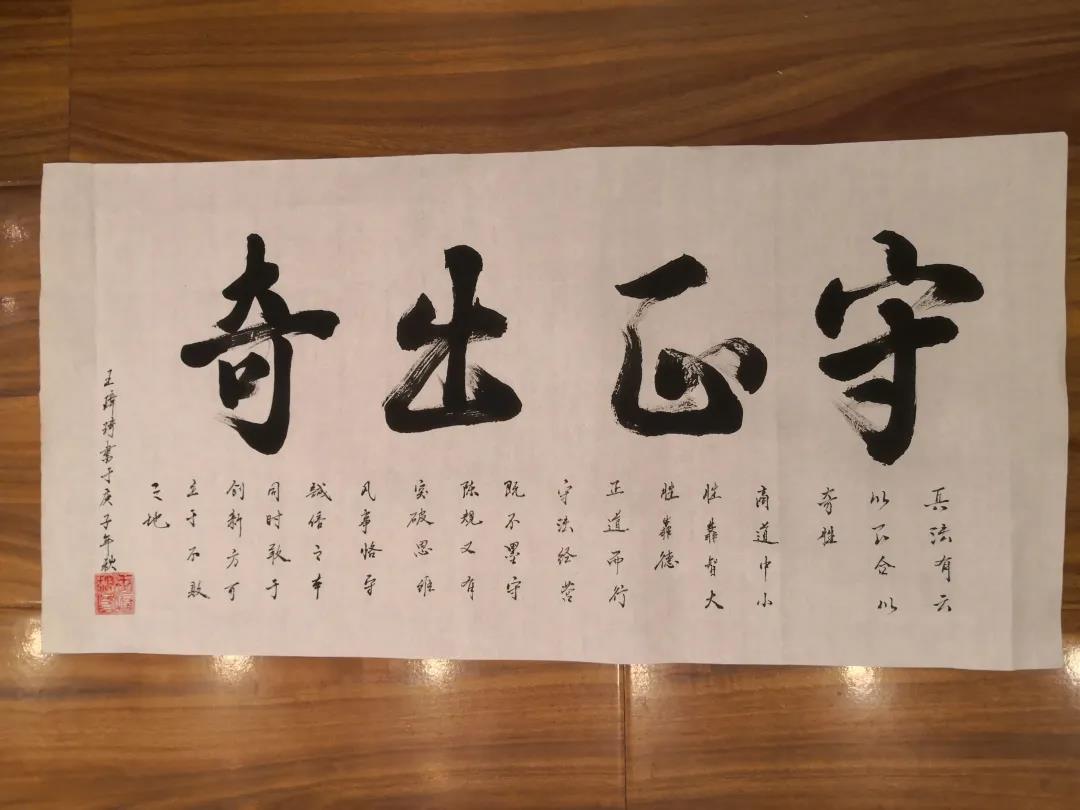 守正出奇
兵法有云
以正合以
奇胜
商道中小
胜靠智大
胜靠德
正道而行
守法经营
既不墨守
陈规又有
突破思维
凡事恪守
誠信之本
同时敢于
创新方可
立于不败
之地
王琦琦書于庚子年秋